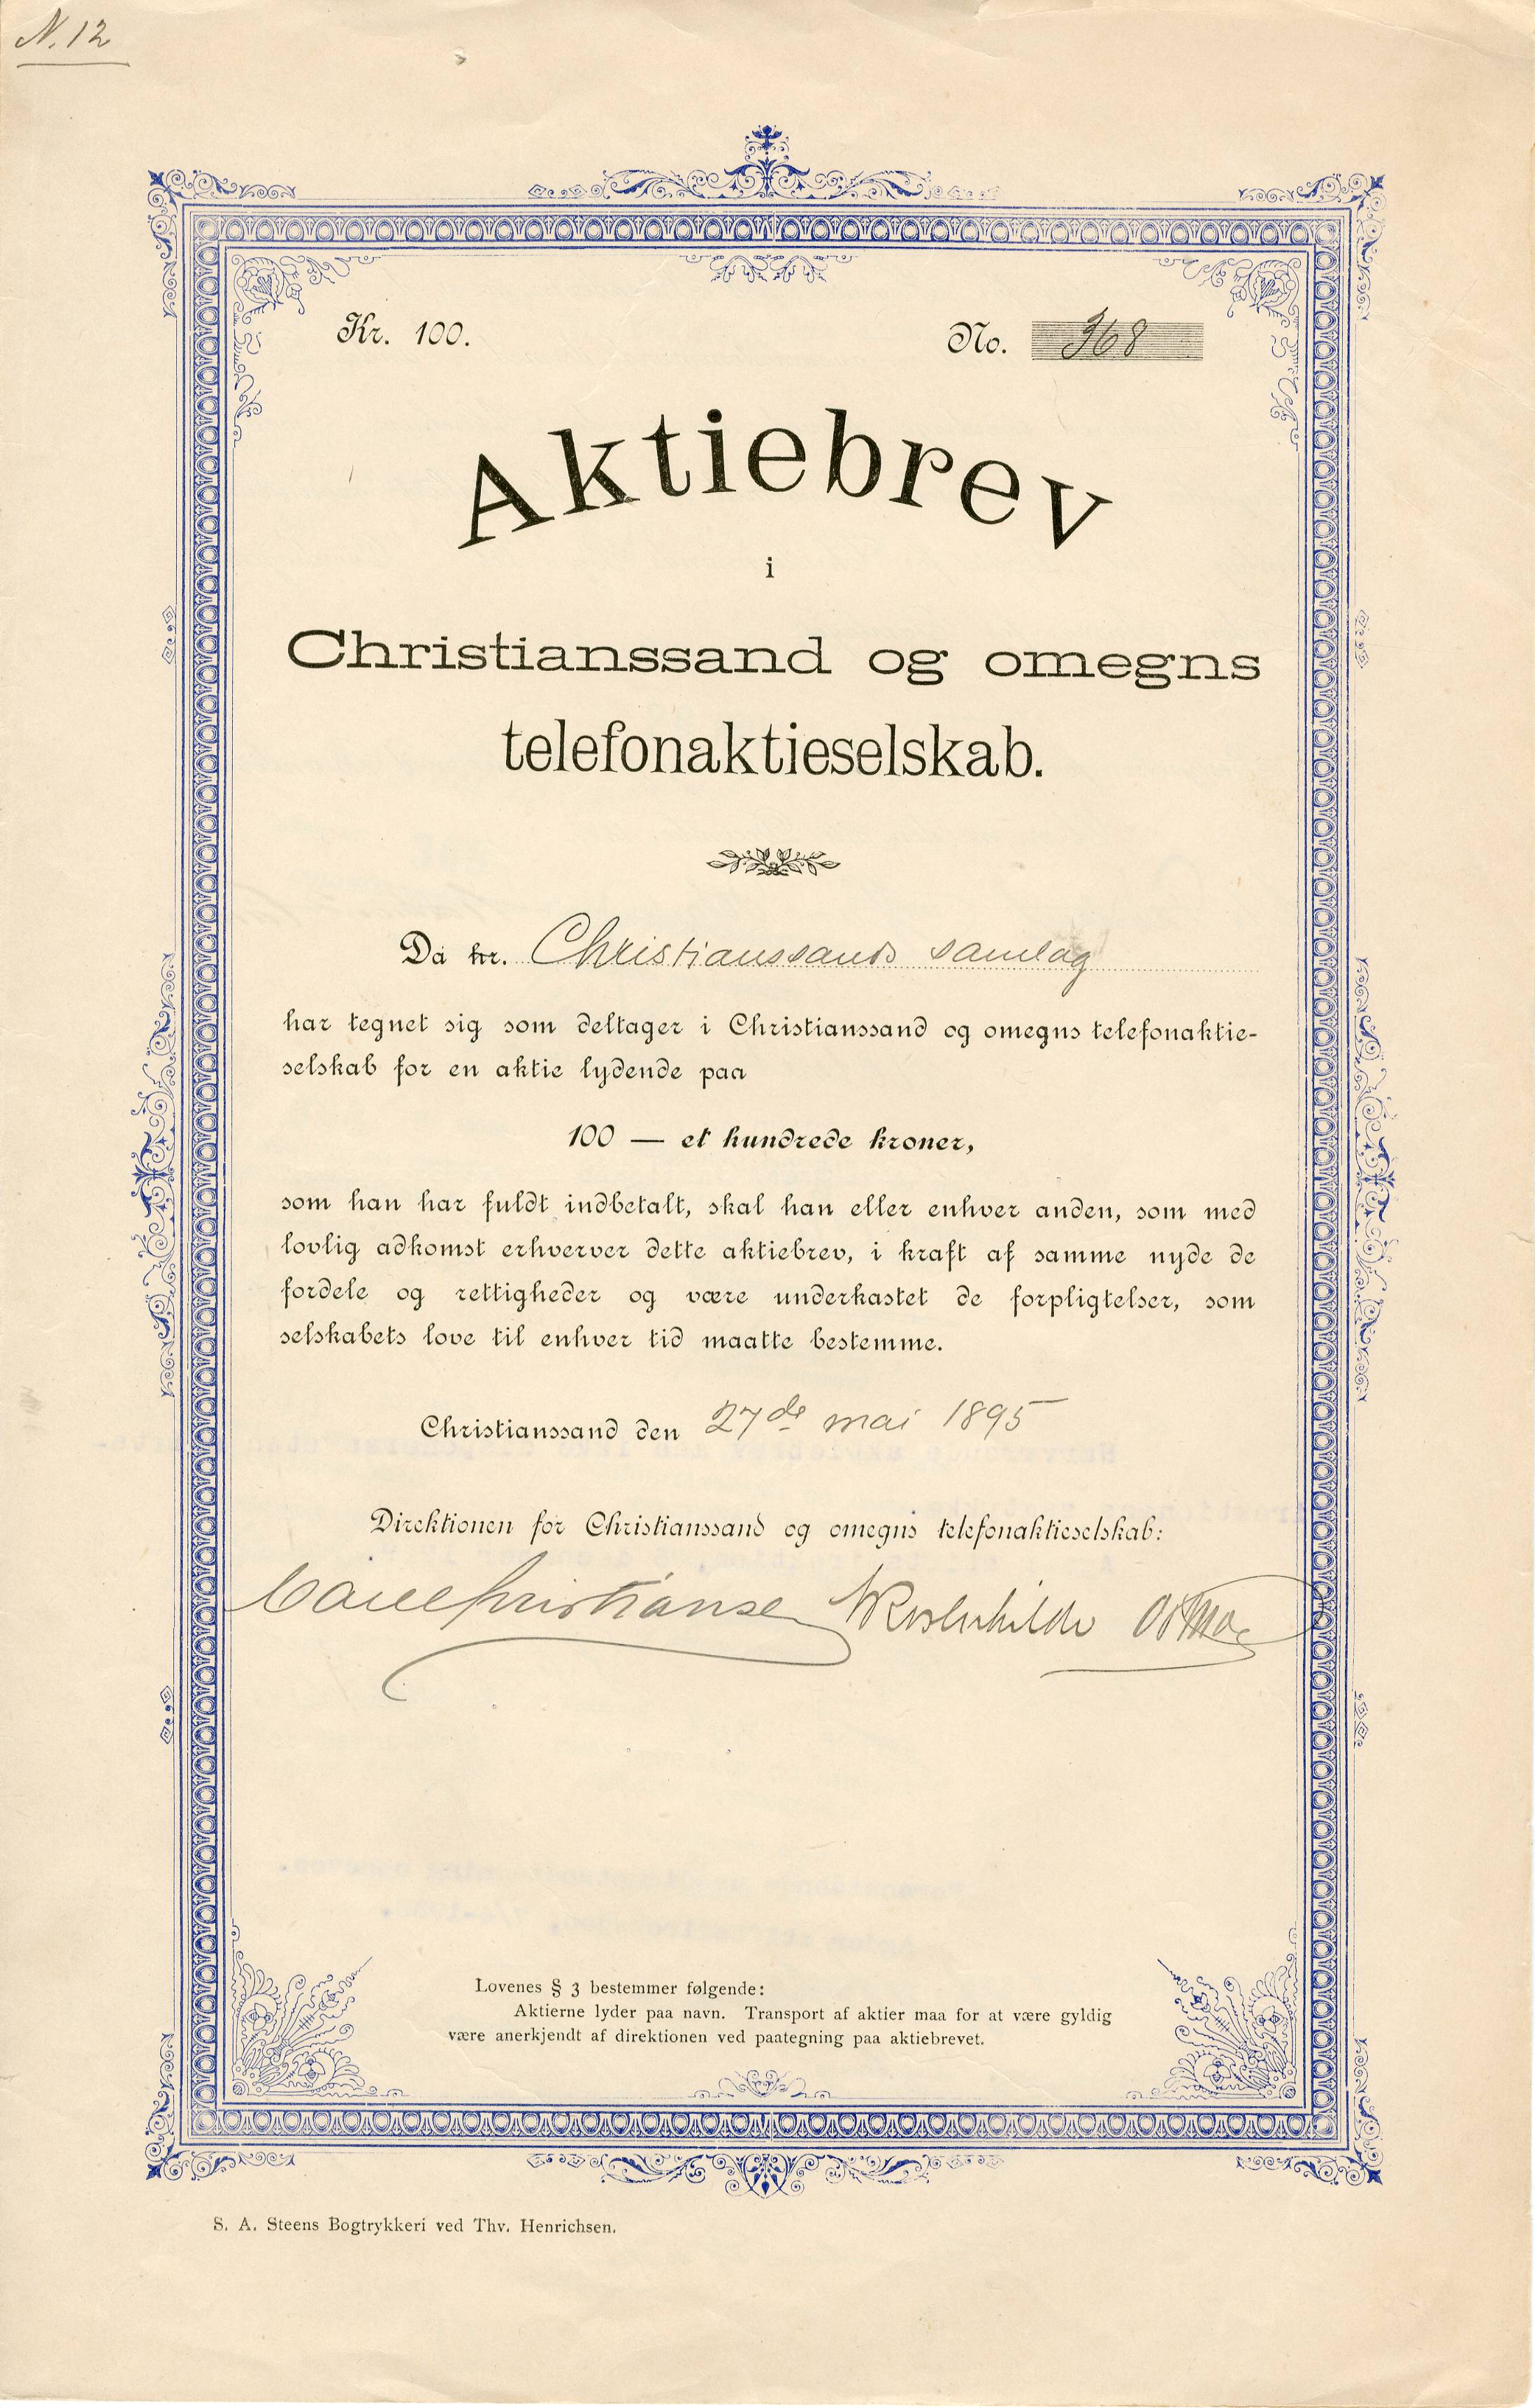 N. 12
Kr. 100.
No. 368
Aktiebrev
i
Christianssand og omegns
telefonaktieselskab.
Da hr. Christianssands samlag
har tegnet sig som deltager i Christianssand og omegns telefonaktie-
selskab for en aktie lydende paa
100 — et hundrede kroner,
som han har fuldt indbetalt, skal han eller enhver anden, som med
lovlig adkomst erhverver dette aktiebrev, i kraft af samme nyde de
fordele og rettigheder og være underkastet de forpligtelser, som
selskabets love til enhver tid maatte bestemme.
Christianssand den 27de mai 1895
Direktionen for Christianssand og omegns telefonaktieselskab:
Lovenes § 3 bestemmer følgende:
Aktierne lyder paa navn. Transport af aktier maa for at være gyldig
være anerkjendt af direktionen ved paategning paa aktiebrevet.
S. A. Steens Bogtrykkeri ved Thv. Henrichsen.